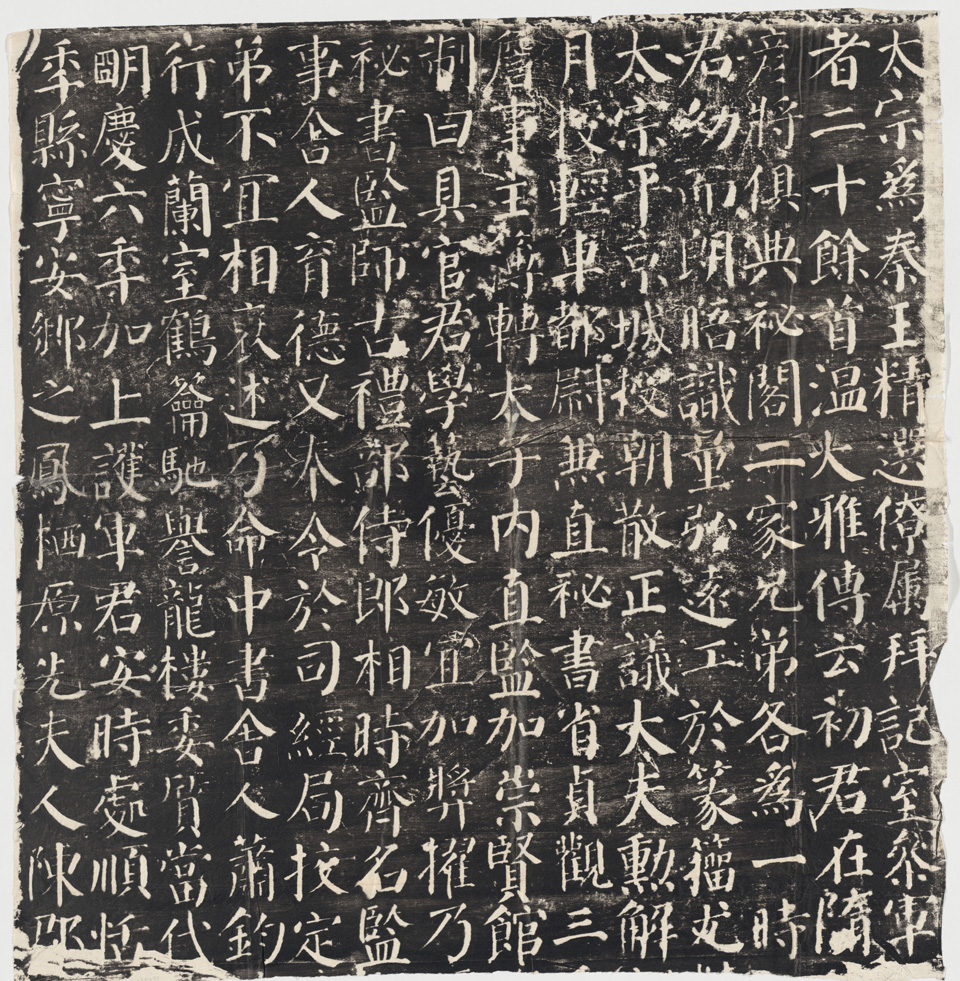 太宗為秦王精選僚属拜記室叅軍
者二十餘首温大雅傳云初君在隋
彦將俱典祕閣二家兄弟各為一時
君幼而朗晤識量弘遠工於篆籀尤
太宗平京城授朝散正議大夫勲解
月授輕車都尉兼直秘書省貞觀三
詹事主簿轉太子内直監加崇賢館
制曰具官君學藝優敏宜加奬擢乃
秘書監師古禮部侍郎相時齊名監
事舍人育德又奉令於司經局挍定
弟不宜相褒述乃命中書舍人蕭鈞
行成蘭室鶴籥馳譽龍樓委質當代
明慶六秊加上護軍君安時處順恬
秊縣寧安鄉之鳳栖原先夫人陳郡